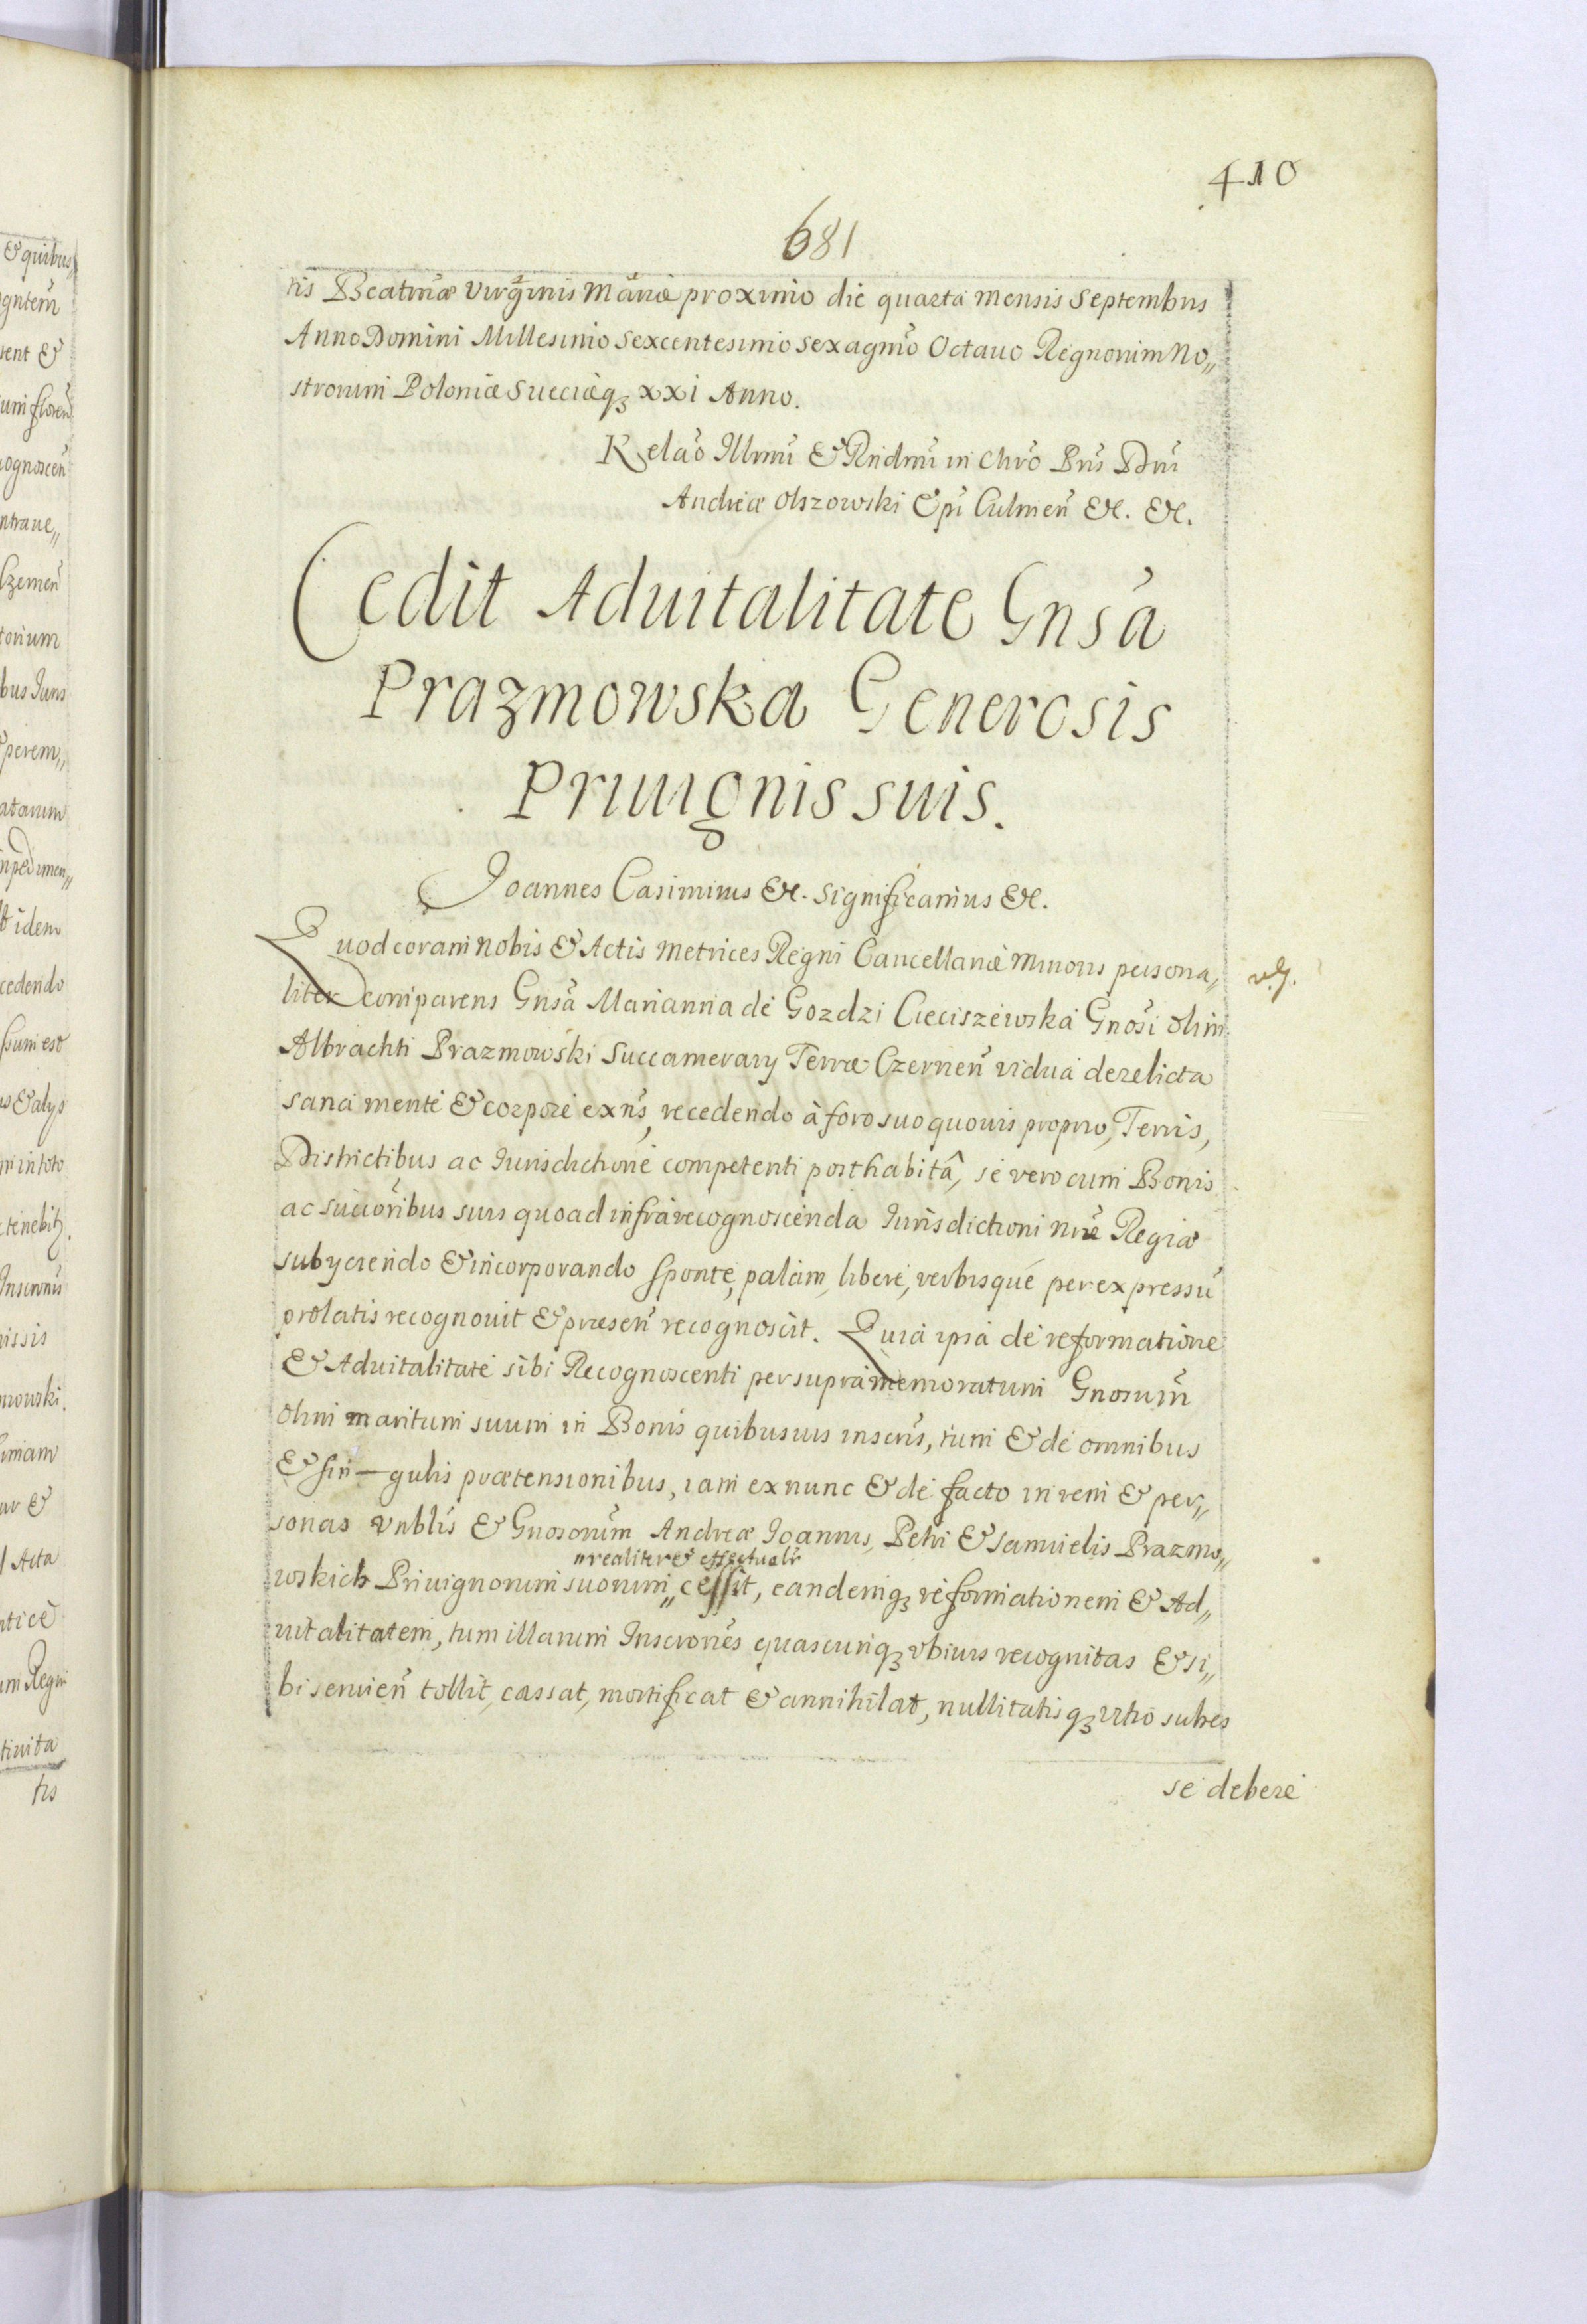 410
681
tis Beatmæ Virginis Mariæ proximo die quarta Mensis Septembris
Anno Domini Millesimo Sexcentesimo Sexagmõ Octauo Regnorum No„
strorum Poloniæ Sueciæqȝ XXI Anno.
Relaõ Illrmi & Rndmi in Chrõ Pris Dni
Andreæ Olszowski Epi Culmeñ &c. &c.
Cedit Aduitalitate Gnsa
Prazmowska Generosis
Priuignis suis.
Joannes Casimirus &c. Significamus &c.
Quod coram nobis & Actis Metrices Regni Cancellariæ Minoris persona„
liter comparens Gnsa Marianna de Gozdzi Cieciszewska Gnosi olim
Albrachti Prazmowski Succamerarij Terræ Czerneñ vidua derelicta
sana mente & corpore exns, recedendo à foro suo quouis proprio, Terris,
Districtibus ac Iurisdictione competenti posthabitâ, se vero cum Bonis
ac succoribus suis quoad infra recognoscenda Iurisdictioni nræ Regiæ
subyciendo & incorporando sponte, palam, libere, verbisque per expressũ
prolatis recognouit & præseñ recognoscit. Quia ipsa de reformatione
& Aduitalitate sibi Recognoscenti per supra memoratum Gnosum
olim maritum suum in Bonis quibusuis inscris, tum & de omnibus
& sin—gulis prætensionibus, iam ex nunc & de facto in rem & per„
sonas Vrblis & Gnosorum Andreæ Joannis, Petri & Samuelis Prazmo„
„realiter & effectualr
wskich Priuignorum suorum „cessit, eandemqȝ reformationem & Ad„
uitalitatem, tum illarum Inscrones quascunqȝ vbiuis recognitas & si„
bi seruieñ tollit, cassat, mortificat & annihilat, nullitatisqȝ vitio subes
se debere
&quibus
sent &
torium
bus Iuris
perem„
atarum
impedimen„
idem
cedendo
sum est
& alys
in toto
tenebitȝ
Inscronis
issis
mowski.
& 
Acta
tice
um Regni
tiuita
tis